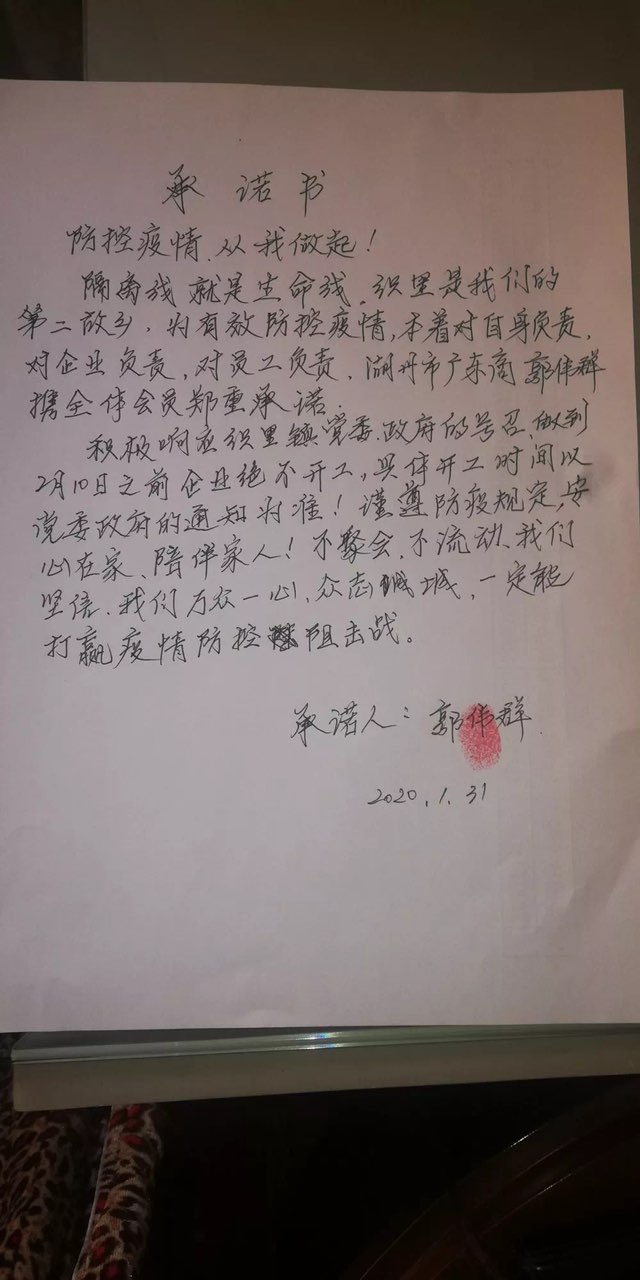 承诺书
防控疫情、从我做起！
隔离线就是生命线，织里是我们的
第二故乡，为有效防控疫情，本着对自身负责，
对企业负责，对员工负责，湖州市广东商郭伟群
携全体会员郑重承诺：
积极响应织里镇党委、政府的号召，做到
2月10日之前企业绝不开工，具体开工时间以
党委政府的通知为准！谨遵防疫规定，安
心在家、陪伴家人！不聚会、不流动、我们
坚信，我们万众一心，众志城，一定能
打赢疫情防控阻击战。
承诺人：郭伟群
2020.1.31